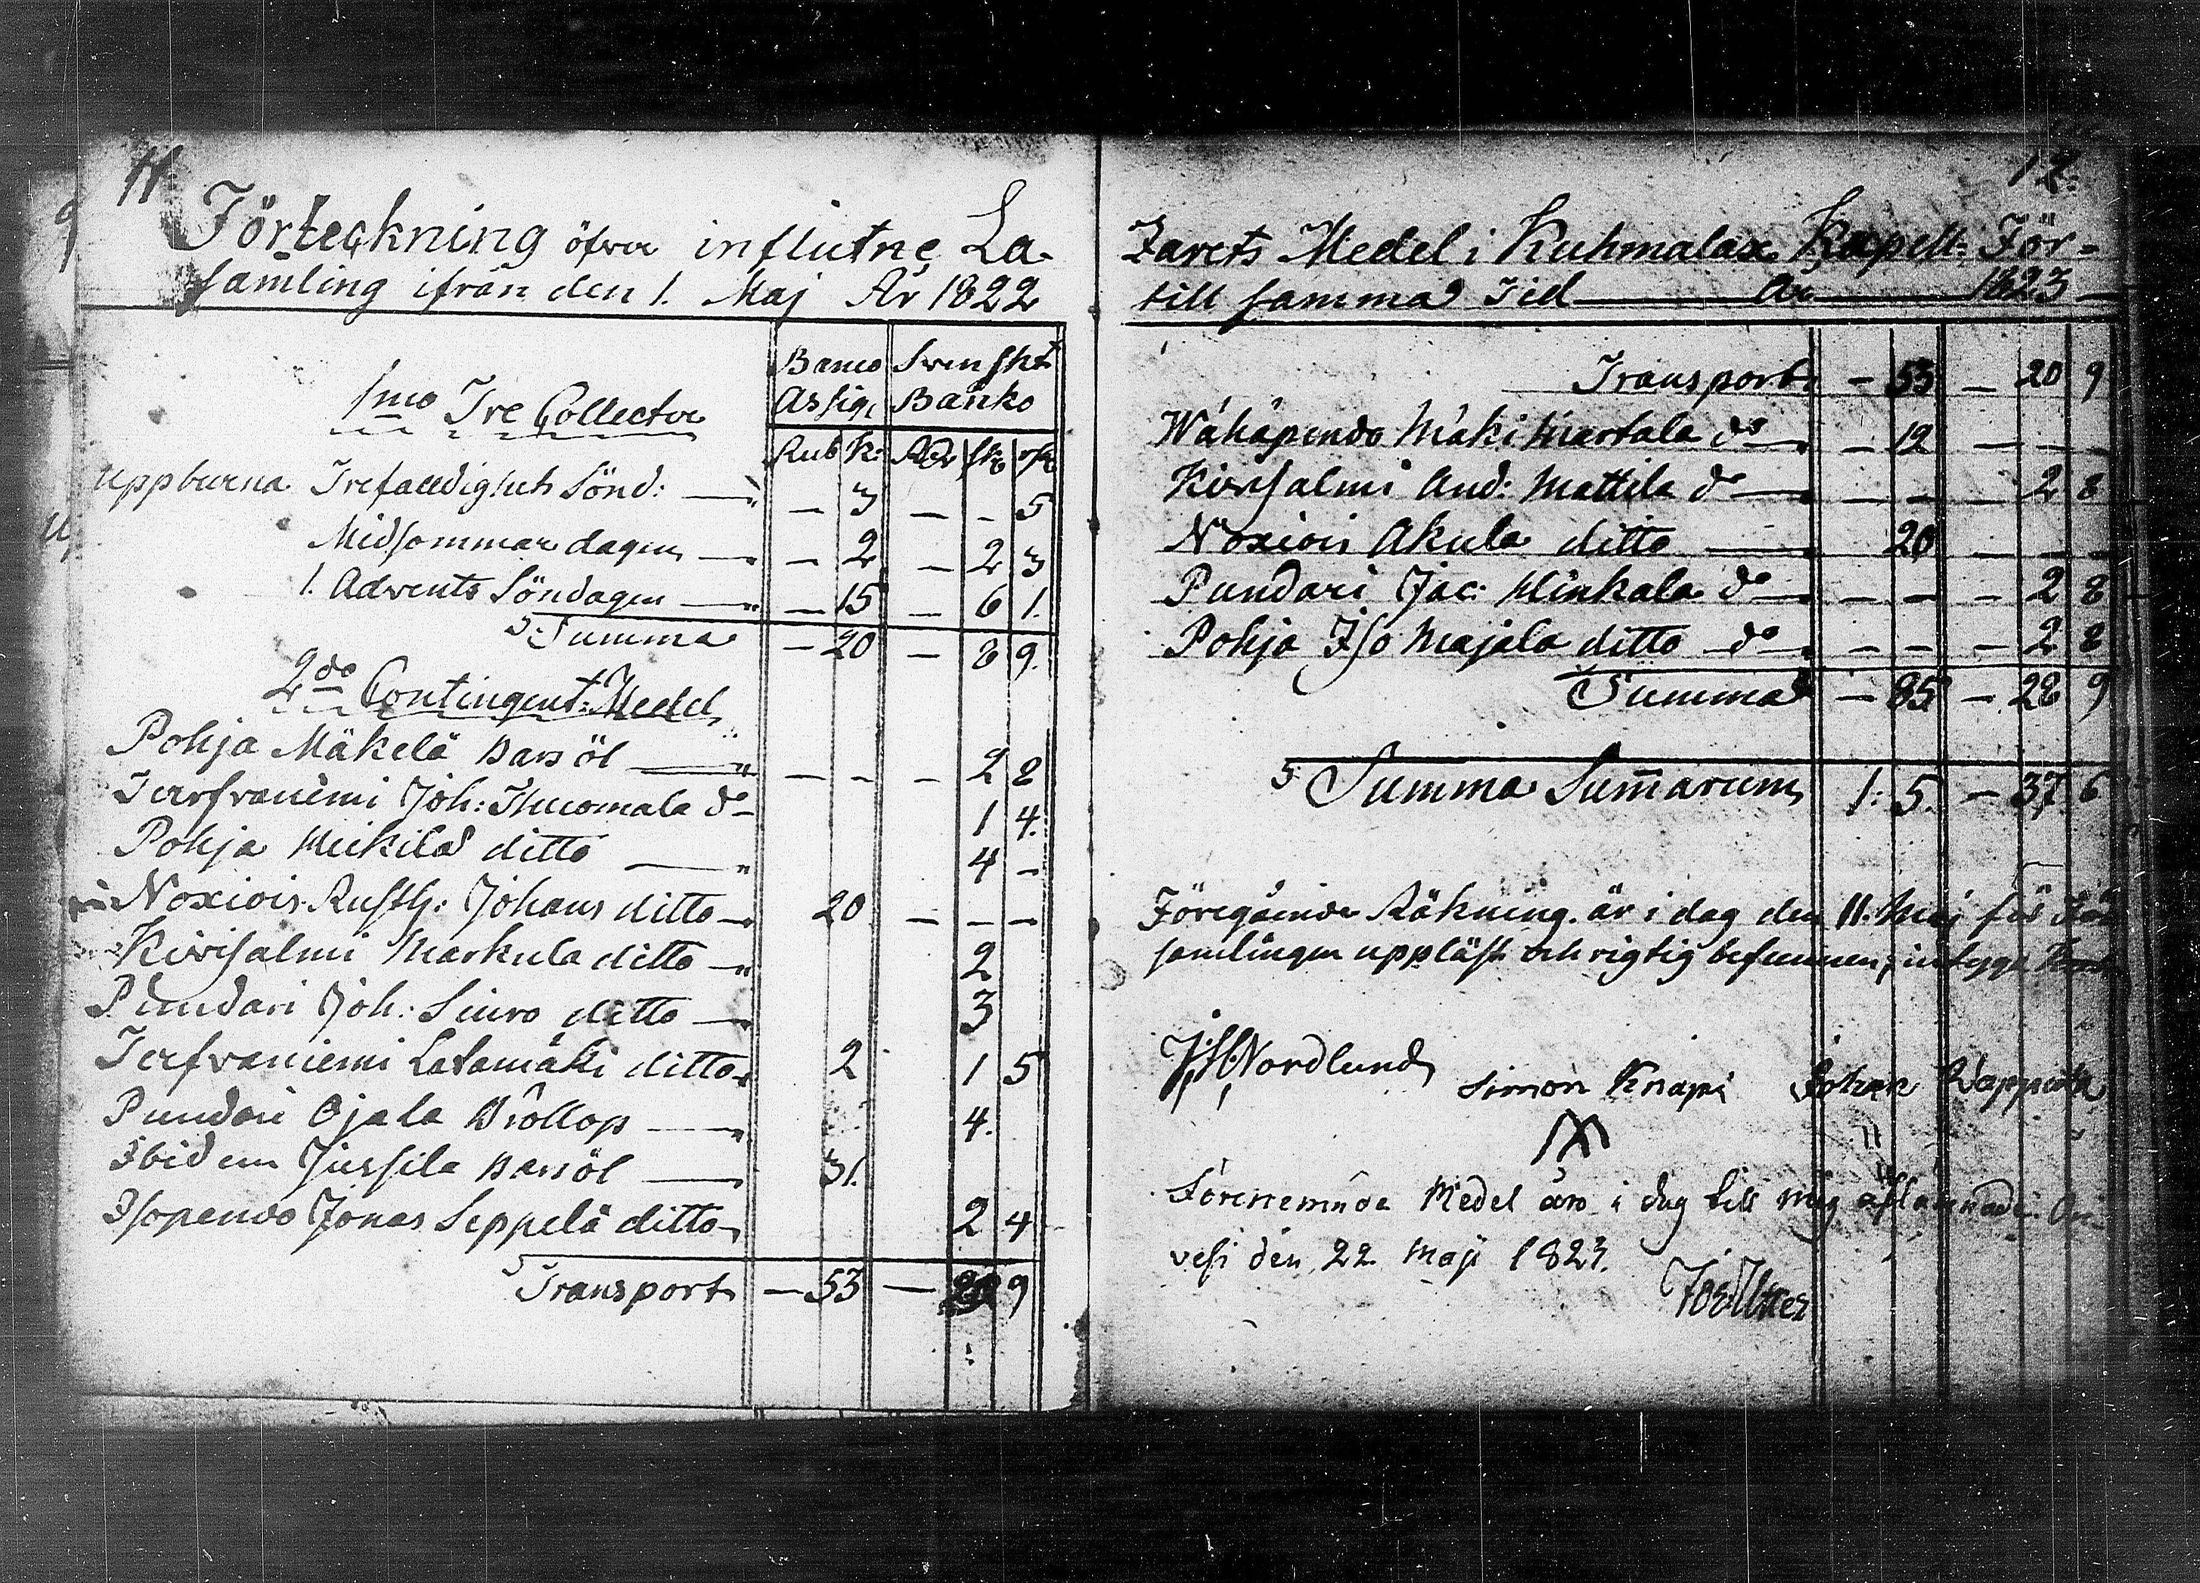 11
Förteckning öfver influtne La-
samling ifrån den 1. Maj År 1822
Banco Svenskt
Assig. Banko
Rub k: Rdr sk rst
1mo Tre Collecter
uppburna Trefaldighets Sönd: — 3 — - 5
Midsommar dagen — 2 — 2 3
1. Advents Söndagen — 15 — 6 1.
Summa — 20 — 8 9.
2do Contingent-Medel
Pohja Mäkelä barsöl — - — 2 8
Joh: do 1 4.
Pohja ditto 4 -
Noxiois Rusth: Johans ditto 20 — — —
Kivisalmi Markula ditto 2
Pundari Joh: ditto 3
Jerfvaniemi Latomäki ditto 2 1 5
Pundari Ojala Bröllop 4.
Ibidem Jussila barsöl 31.
Isopendo Jonas Seppelä ditto 2 4
Transport — 53 — 20 9
12.
Zarets Medel i Kuhmalax Kapell- För-
till samma Tid År 1823
Transport — 53 — 20 9
Wähäpendo Mäki Martala do — 12 — — —
Kivisalmi And: Mattila do — — — 2 8
Noxiois Akula ditto 20 — — —
Pundari Jac: Hinkala do — — — 2 8
Pohja Iso Majala ditto do — — — 2 8
Summa — 85 — 28 9
Summa Summarum 1: 5. — 37. 6
Föregående Räkning är i dag den 11. Maj för För
samlingen uppläst och rigtig befunnen, intyga
Nordlund Simon Knapi Johan
Förenemnde Medel äro i dag till mig aflämnade. Or-
vesi den 22 Maji 1823.